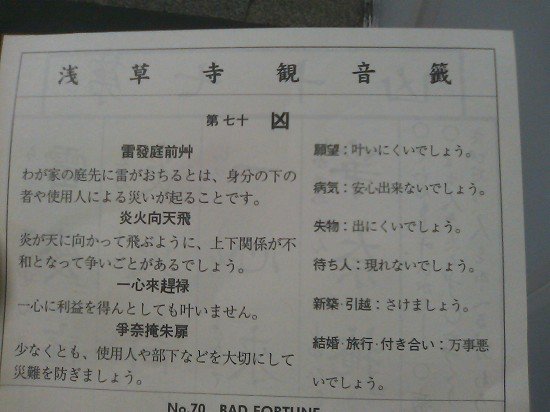 浅草寺観音籤
第七十 凶
雷發庭前艸
わが家の庭先に雷がおちるとは、身分の下の
者や使用人による災いが起ることです。
炎火向天飛
炎が天に向かって飛ぶように、上下関係が不
和となって争いごとがあるでしょう。
一心來趕禄
一心に利益を得んとしても叶いません。
爭奈掩朱扉
少なくとも、使用人や部下などを大切にして
災難を防ぎましょう。
願望：叶いにくいでしょう。
病気：安心出来ないでしょう。
失物：出にくいでしょう。
待ち人：現れないでしょう。
新築・引越：さけましょう。
結婚・旅行・付き合い：万事悪
いでしょう。
No.70 BAD FORTUNE